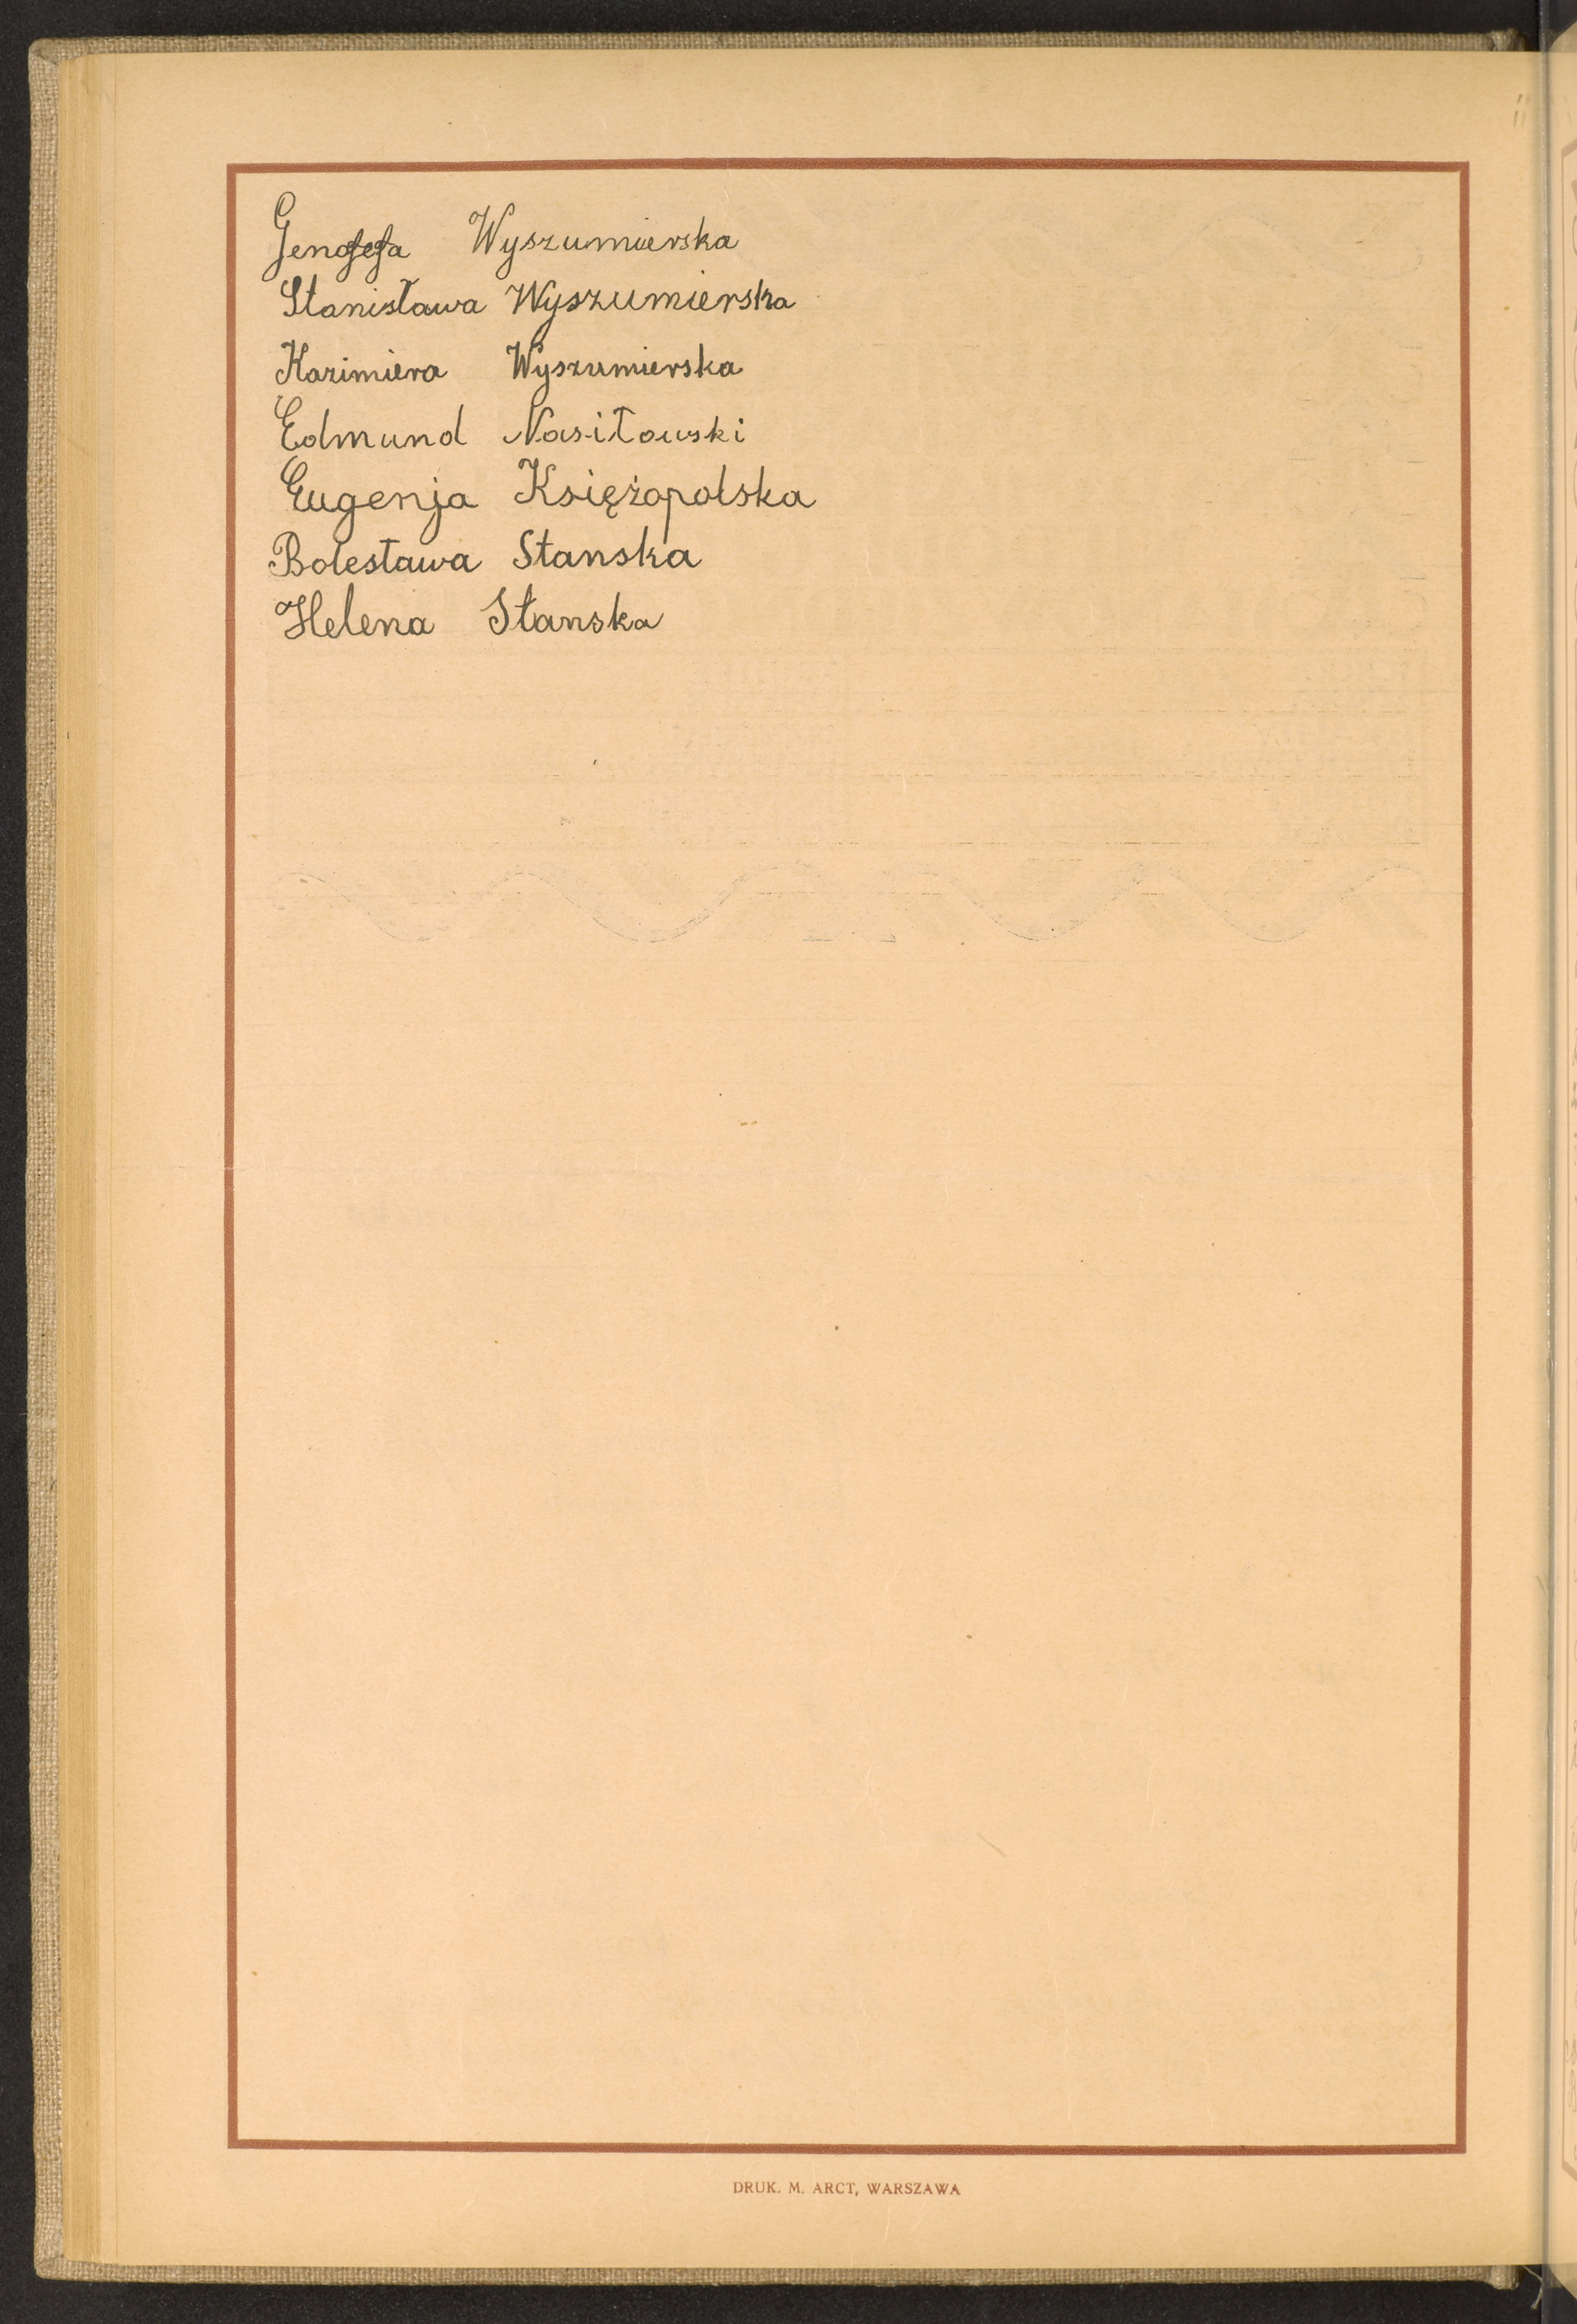 Genofefa Wyszumierska
Stanisława Wyszumierska
Kazimiera Wyszumierska
Edmund Nasiłowski
Eugenja Księżopolska
Bolesława Stanska
Helena Stanska
DRUK. M. ARCT, WARSZAWA